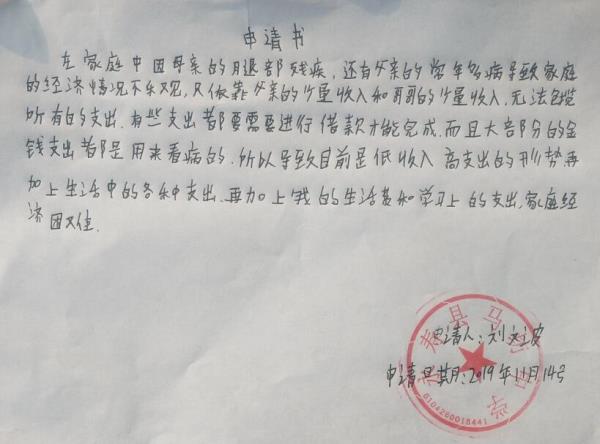 申请书
在家庭中因母亲的腿部残疾，还有父亲的常年多病导致家庭
的经济情况不乐观，只依靠父亲的少量收入和哥哥的少量收入，无法包揽
所有的支出，有些支出都要需要进行借款才能完成，而且大部分的金
钱支出都是用来看病的，所以导致目前是低收入高支出的形势再
加上生活中的各种支出，再加上我的生活费和学习上的支出，家庭经
济困难。
申请人：刘文波
申请日期：2019年11月14号
寿县马
0104260018441